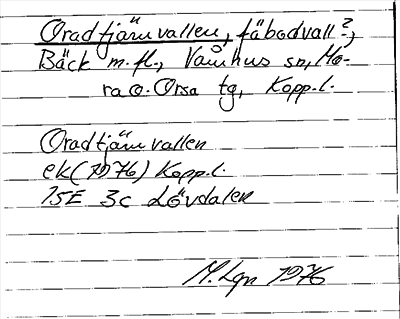 Oradtjärnvallen, fäbodvall?,
Bäck m.fl., Våmhus sn, Mo-
ra o. Orsa tg, Kopp.l.
Oradtjärnvallen
ek (1976) Kopp.l.
15E 3c Lövdalen
M. Lgn 1976